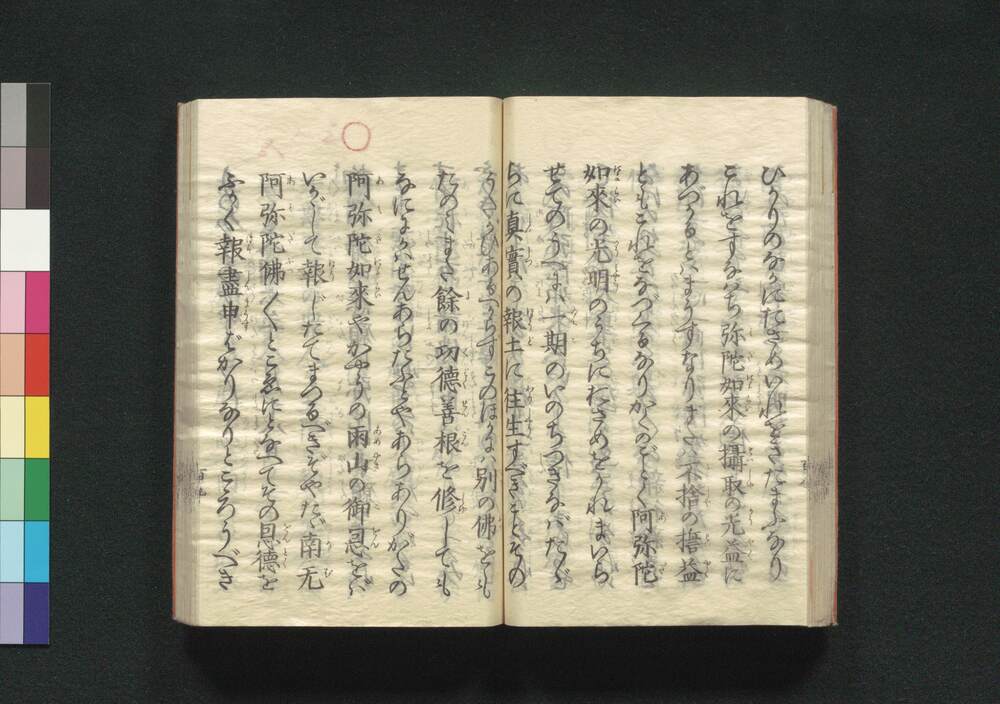 ひかりのなかにおさめいれをきたまふなり
これをすなはち弥陀如來の攝取の光益に
あづかるとはまうすなりまたは不捨の誓益
ともこれをなづくるなりかくのごとく阿弥陀
如來の光明のうちにおさめをかれまいら
せてのうへには一期のいのちつきなばたゞ
ちに真實の報土に往生すべきことその
うたがひあるべからずこのほかには別の佛をも
たのみまた餘の功德善根を修しても
なにゝかはせんあらたふとやあらありがたの
阿弥陀如來やかやうの雨山の御恩をば
いかゞして報じたてまつるべきぞやたゞ南无
阿弥陀佛〱とこゑにとなへてその恩德を
ふかく報盡申ばかりなりとこゝろうべき